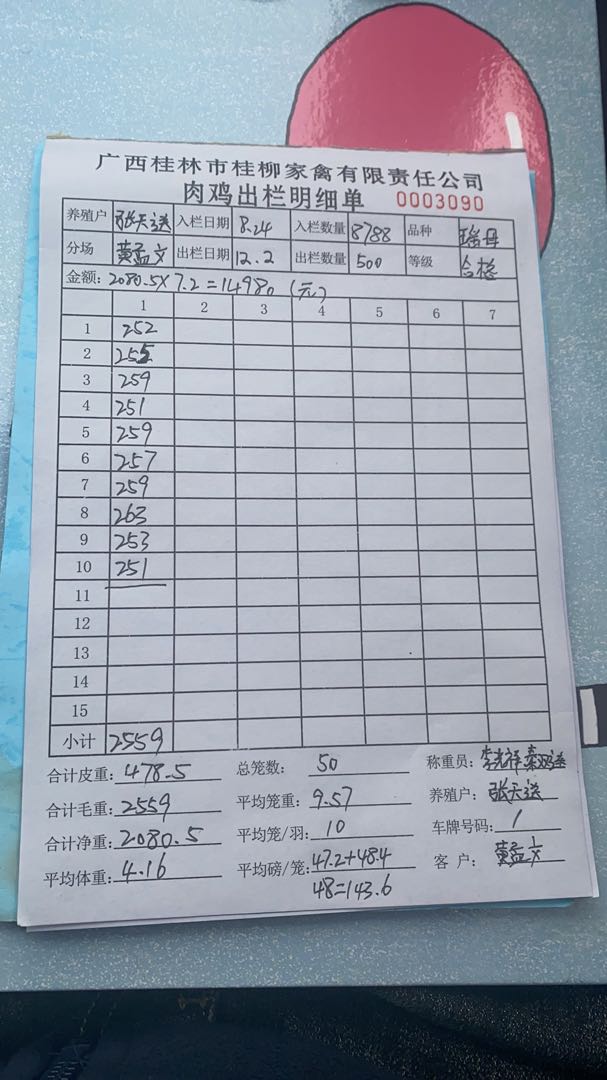 广西桂林市桂柳家禽有限责任公司
肉鸡出栏明细单 0003090
养殖户 张天送 入栏日期 8.24 入栏数量 8788 品种 瑞丹
分场 黄孟文 出栏日期 12.2 出栏数量 500 等级 合格
金额: 2080.5×7.2=14980 (元)
1 2 3 4 5 6 7
1 252
2 255
3 259
4 251
5 259
6 257
7 259
8 263
9 253
10 251
11
12
13
14
15
小计 2559
合计皮重: 478.5 总笼数: 50 称重员:
合计毛重: 2559 平均笼重: 9.57 养殖户: 张天送
合计净重: 2080.5 平均笼/羽: 10 车牌号码: /
平均体重: 4.16 平均磅/笼: 47.2+48.4 客户: 黄孟文
48=143.6